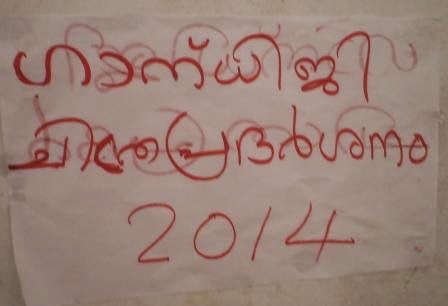 ഗാന്ധിജി
ചിത്രപ്രദർശനം
2014